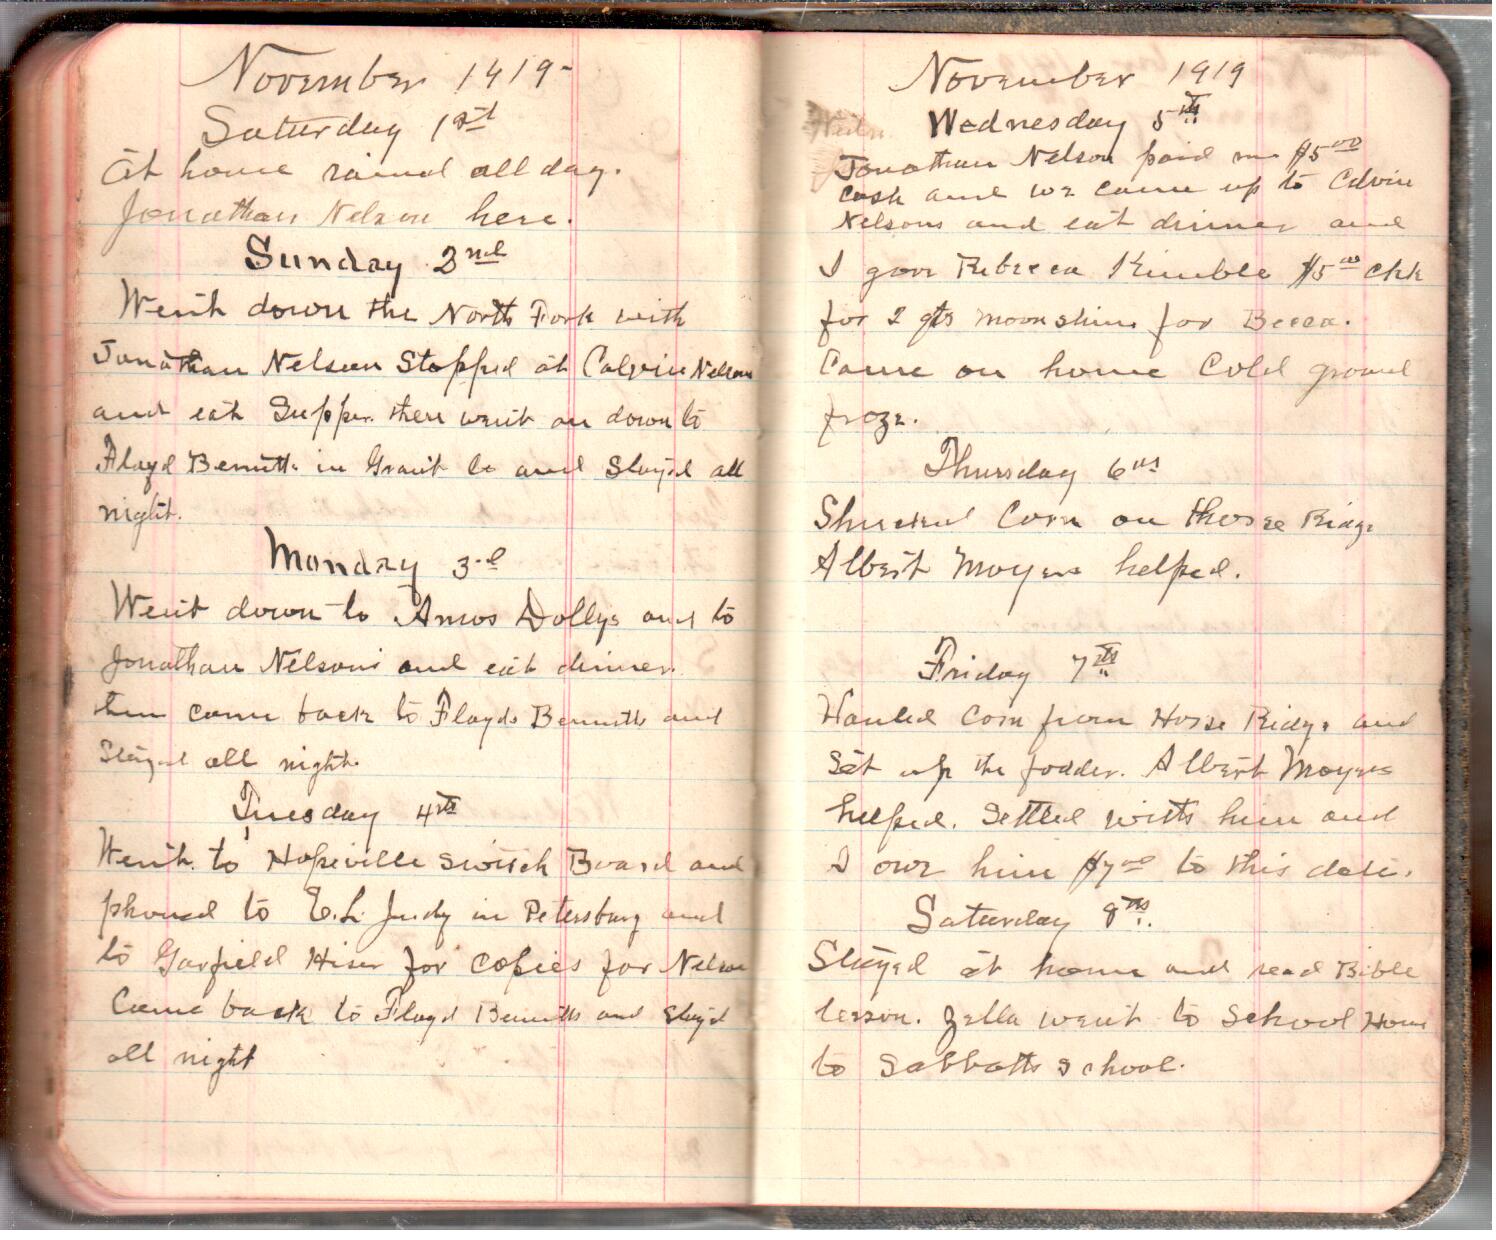 November 1919-
Saturday 1st
At home rained all day.
Jonathan Nelson here.
Sunday 2nd
Went down the North Fork with
Jonathan Nelson Stopped at Calvin Nelson
and eat Supper. then went on down to
Floyd Bennetts in Grant Co and Stayed all
night.
Monday 3rd
Went down to Amos Dollys and to
Jonathan Nelsons and eat dinner.
then came back to Floyds Bennetts and
Stayed all night.
Tuesday 4th
Went to Hopeville Switch Board and
phoned to E.L. Judy in Petersburg and
to Garfield Hiser for copies for Nelson
Came back to Floyd Bennetts and Stayed
all night
November 1919
Wednesday 5th
Jonathan Nelson paid me $5.00
cash and we came up to Calvin
Nelsons and eat dinner and
I gave Rebecca Kimble $5.00 chk
for 2 qts moonshine for Becca.
Came on home Cold ground
froze.
Thursday 6th
Shucked Corn on Horse Ridge
Albert Moyers helped.
Friday 7th
Hauled Corn from Horse Ridge and
Set up the fodder. Albert Moyers
helped. Settled with him and
I owe him $7.00 to this date.
Saturday 8th.
Stayed at home and read Bible
lesson. Zella went to School House
to Sabbath School.